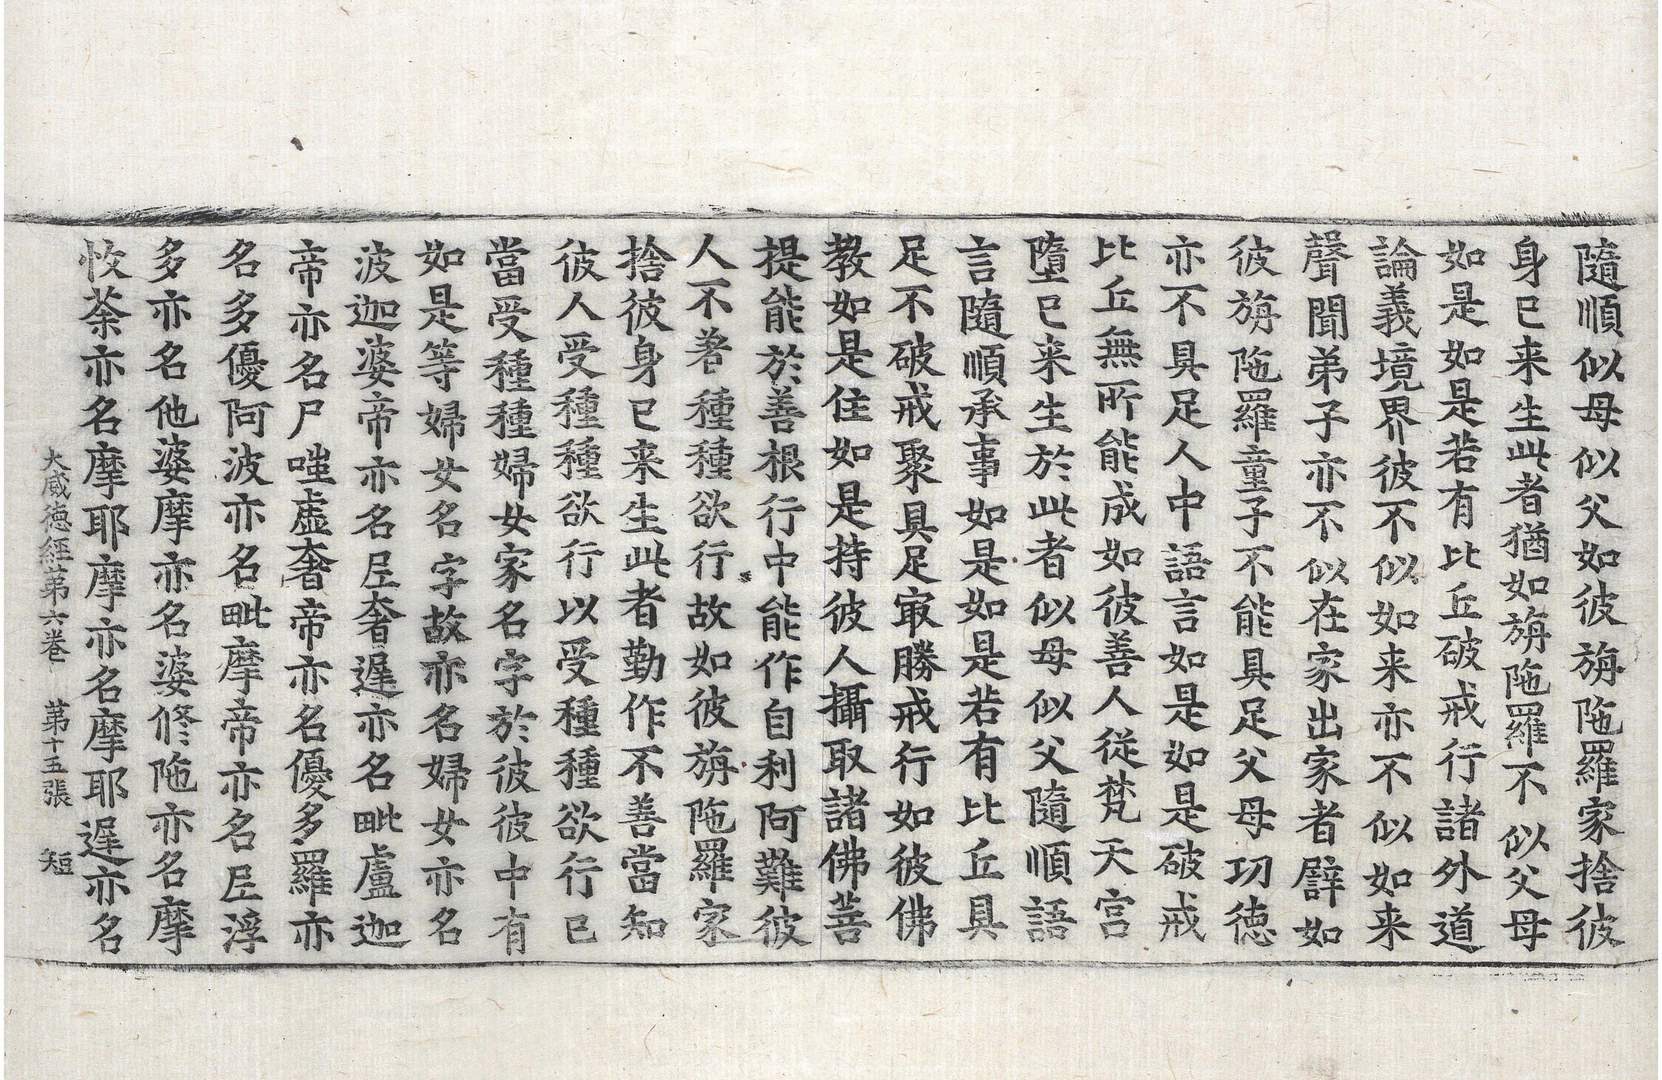 隨順似母似父如彼旃陁羅家捨彼
身已来生此者猶如旃陁羅不似父母
如是如是若有比丘破戒行諸外道
論義境界彼不似如来亦不似如来
聲聞弟子亦不似在家出家者譬如
彼旃陁羅童子不能具足父母功德
亦不具足人中語言如是如是破戒
比丘無所能成如彼善人從梵天宮
墮已来生於此者似母似父隨順語
言隨順承事如是如是若有比丘具
足不破戒聚具足冣勝戒行如彼佛
教如是住如是持彼人攝取諸佛菩
提能於善根行中能作自利阿難彼
人不著種種欲行故如彼旃陁羅家
捨彼身已来生此者勤作不善當知
彼人受種種欲行以受種種欲行已
當受種種婦女家名字於彼彼中有
如是等婦女名字故亦名婦女亦名
波迦婆帝亦名𡰱奢遲亦名毗盧迦
帝亦名尸嗤虛奢帝亦名優多羅亦
名多優阿波亦名毗摩帝亦名𡰱浮
多亦名他婆摩亦名婆修陁亦名摩
荼亦名摩耶摩亦名摩耶遲亦名
大威德經第六卷　第十五張　短